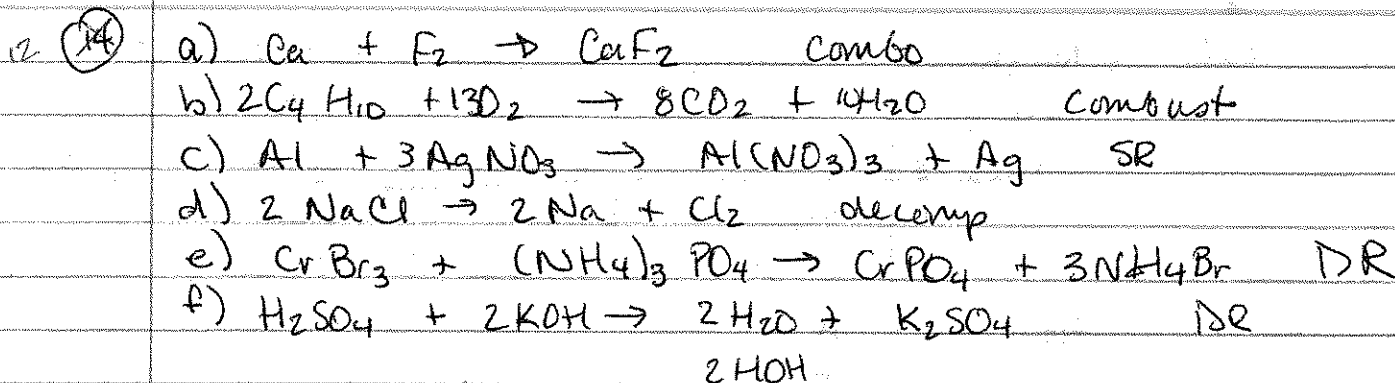 12 14 a) Ca + F2 → CaF2 Combo
b) 2C4 H10 + 13O2 → 8CO2 + 10H2O Combust
c) Al + 3 Ag NO3 → Al(NO3)3 + Ag SR
d) 2 NaCl → 2 Na + Cl2 decomp
e) Cr Br3 + (NH4)3 PO4 → CrPO4 + 3NH4Br DR
f) H2SO4 + 2KOH → 2 H2O + K2SO4 DR
2 HOH